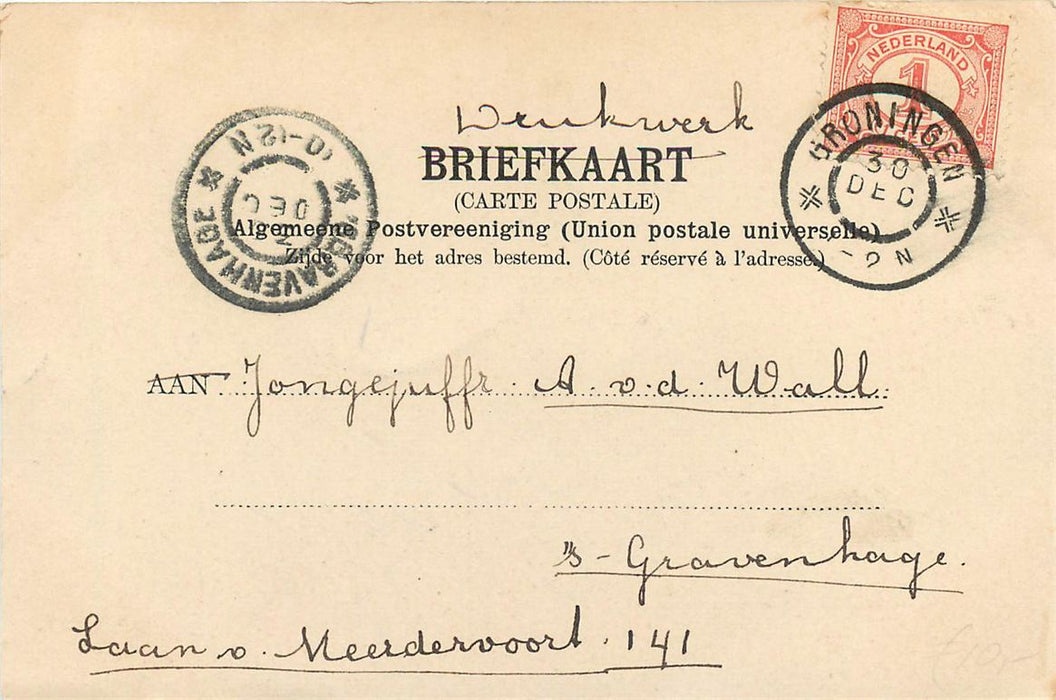 NEDERLAND
1
GRONINGEN
30
DEC
N
10-12 N
DEC
'SGRAVENHAGE
Drukwerk
BRIEFKAART
(CARTE POSTALE)
Algemeene Postvereeniging (Union postale universelle)
Zijde voor het adres bestemd. (Côté réservé à l'adresse.)
AAN Jongejuffr. A. v. d. Wall.
's-Gravenhage.
Laan v. Meerdervoort. 141
£10,-